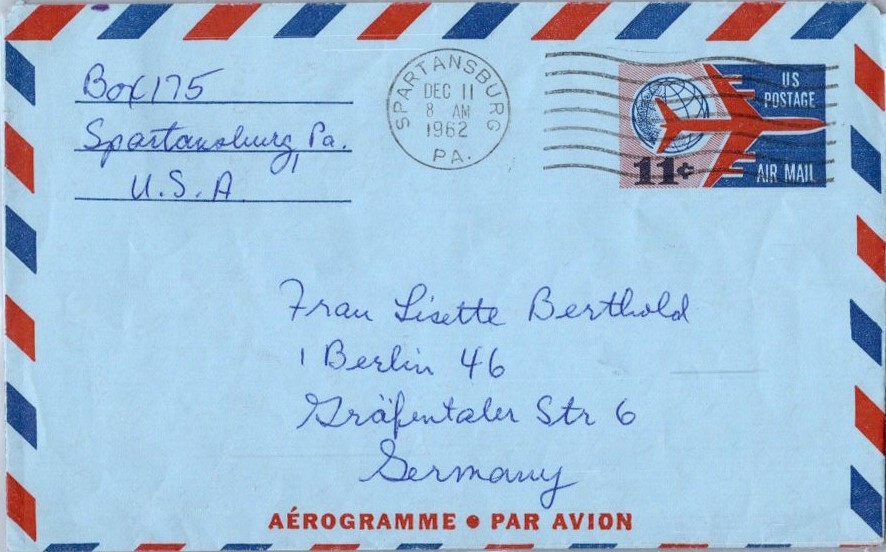 Box 175
Spartansburg, Pa.
U.S.A.
SPARTANSBURG
DEC 11
8 AM
1962
PA.
US
POSTAGE
11¢
AIR MAIL
Frau Lisette Berthold
1 Berlin 46
Gräfentaler Str 6
Germany
AÉROGRAMME • PAR AVION